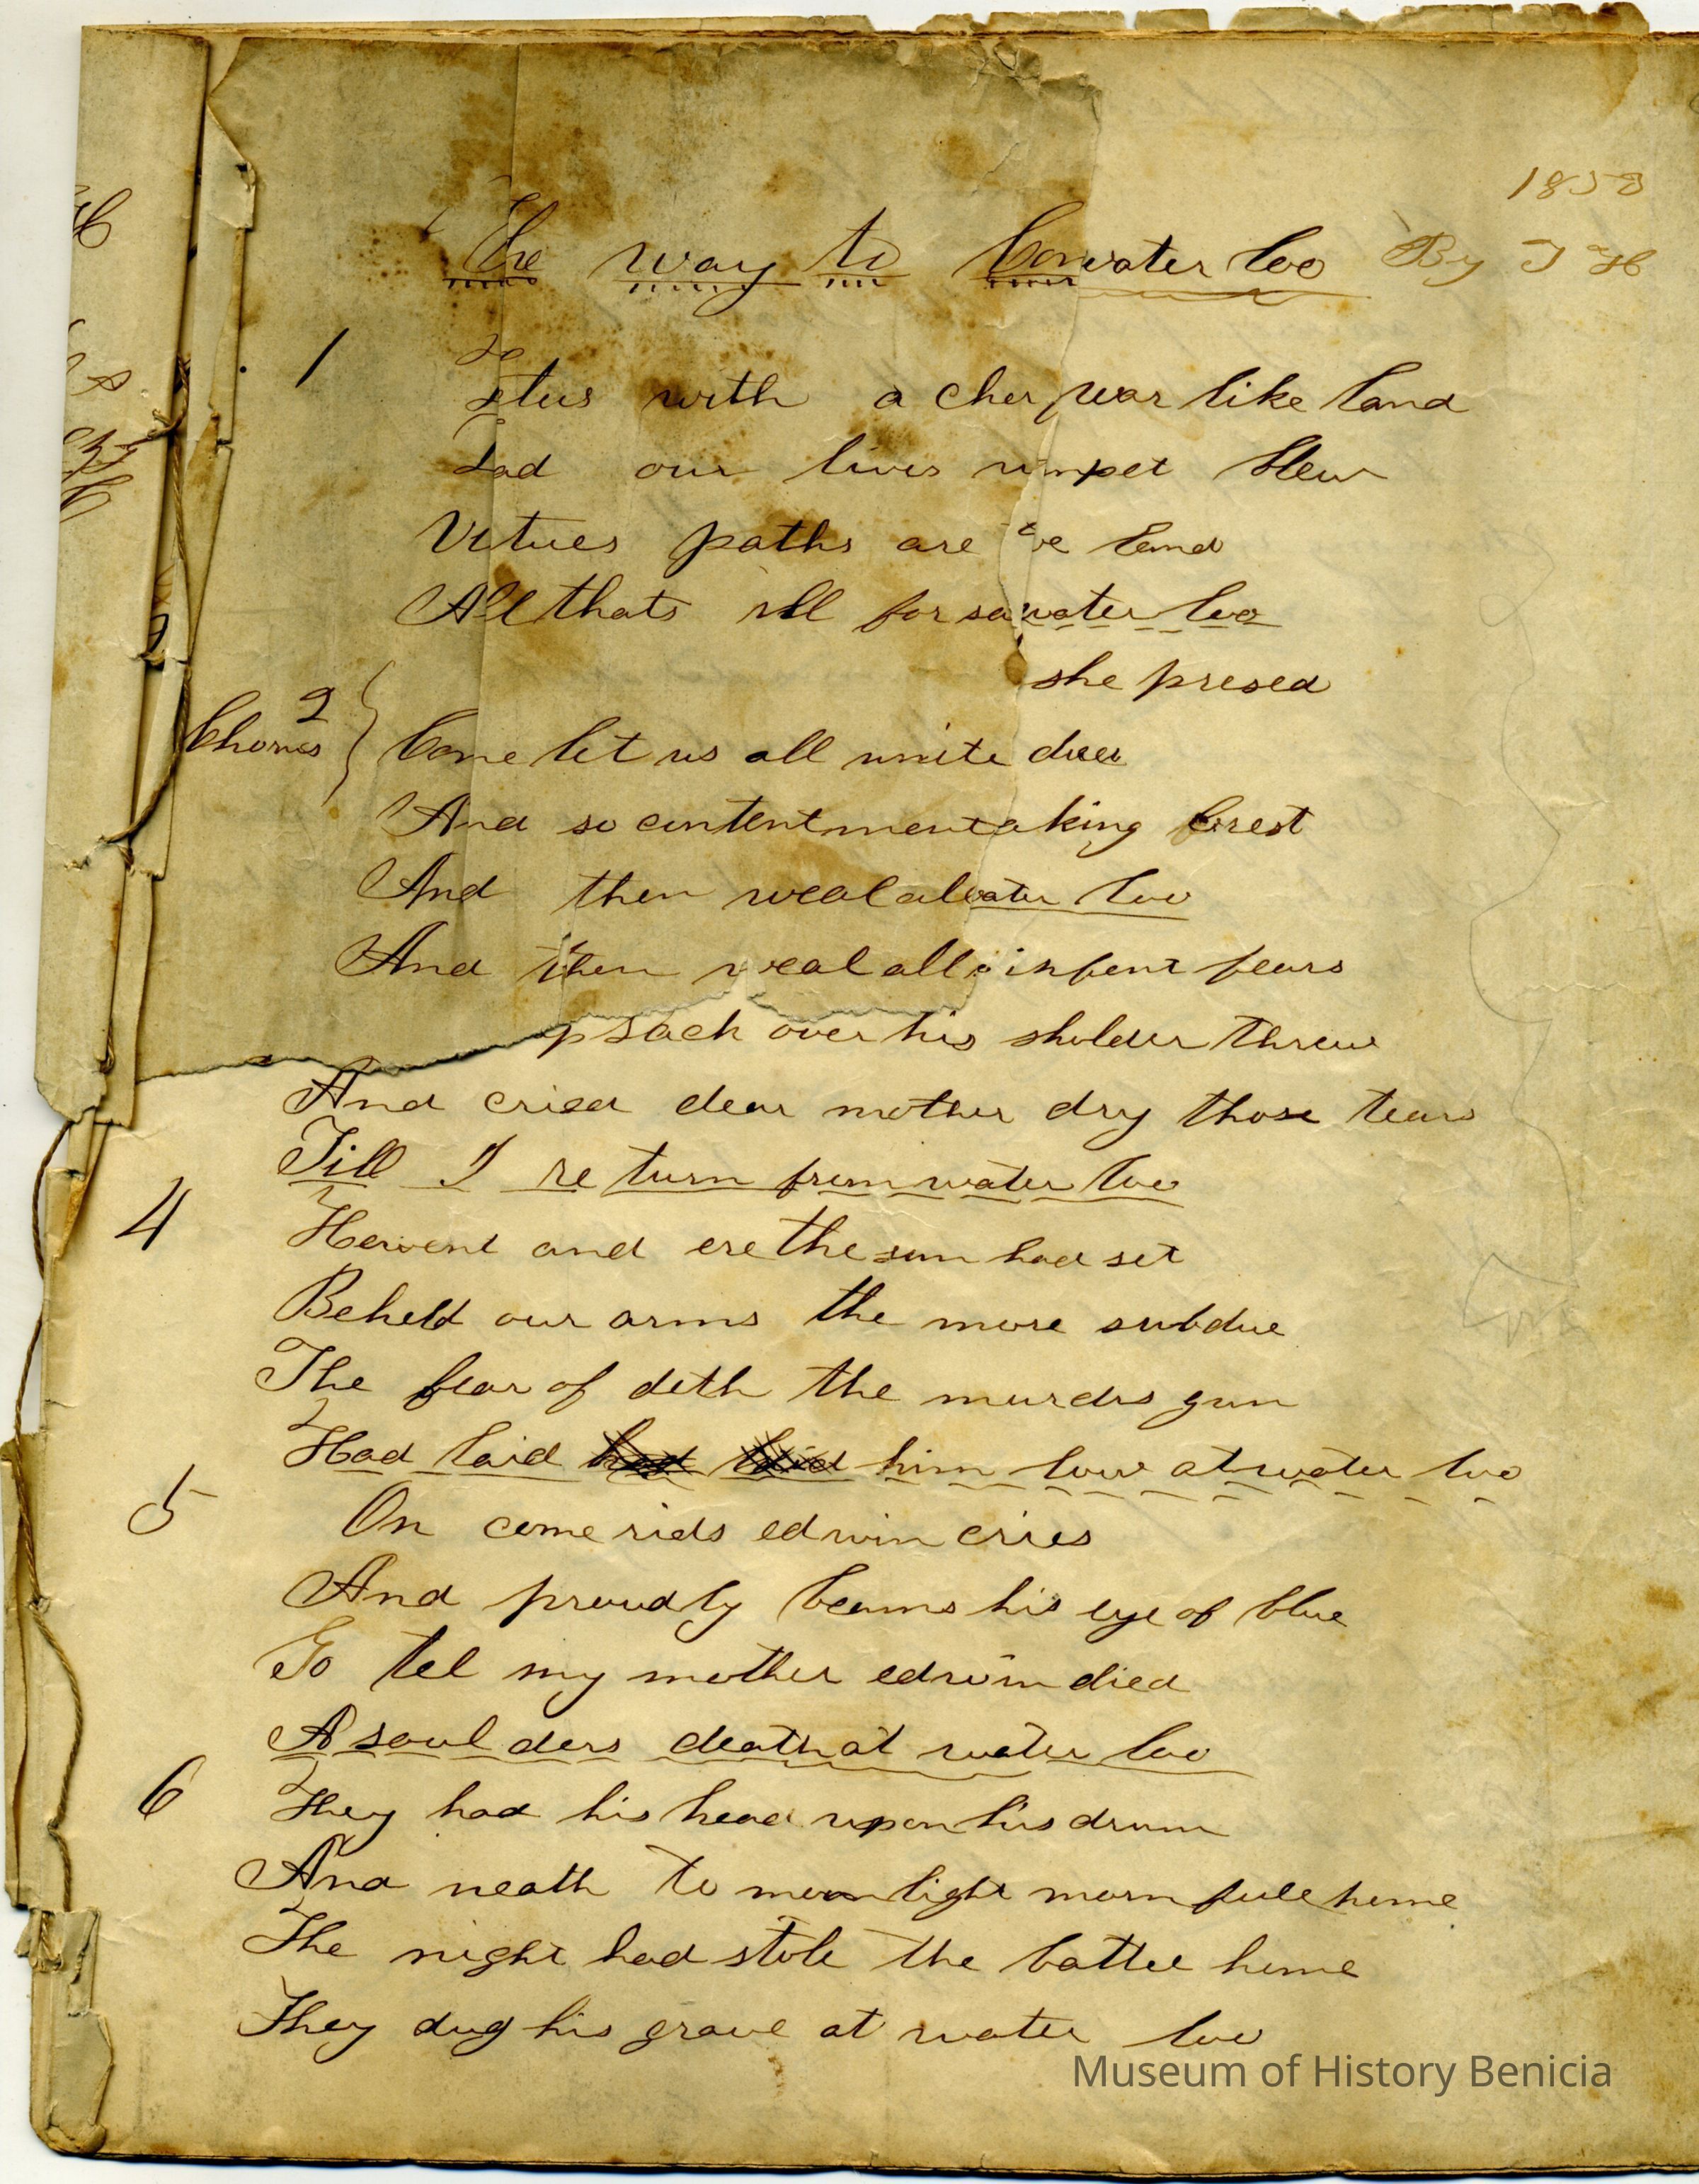 1858
The way to Conwater loo By T H
1
Itus with a cher war like land
Lad our lives unpet Slew
Vitues paths are ve land
All thats ill for sawater loo
she presed
2
Chorus Come let us all unite dies
And so contentmentaking brest
And then weal alwater loo
And then weal all infent fears
psack over his sholder threw
And cried dear mother dry those tears
Till I re turn from water loo
4
He went and ere the sun had set
Beheld our arms the more subdue
The fear of deth the murdrs gun
Had laid him low at water loo
5
On come rids edwin cries
And proudly beams his eye of blue
Go tel my mother edwin died
A soul ders death at water loo
6
They had his head upon his drum
And neath to moon light morn full hume
The night had stole the battle hume
They dug his grave at water loo
Museum of History Benicia